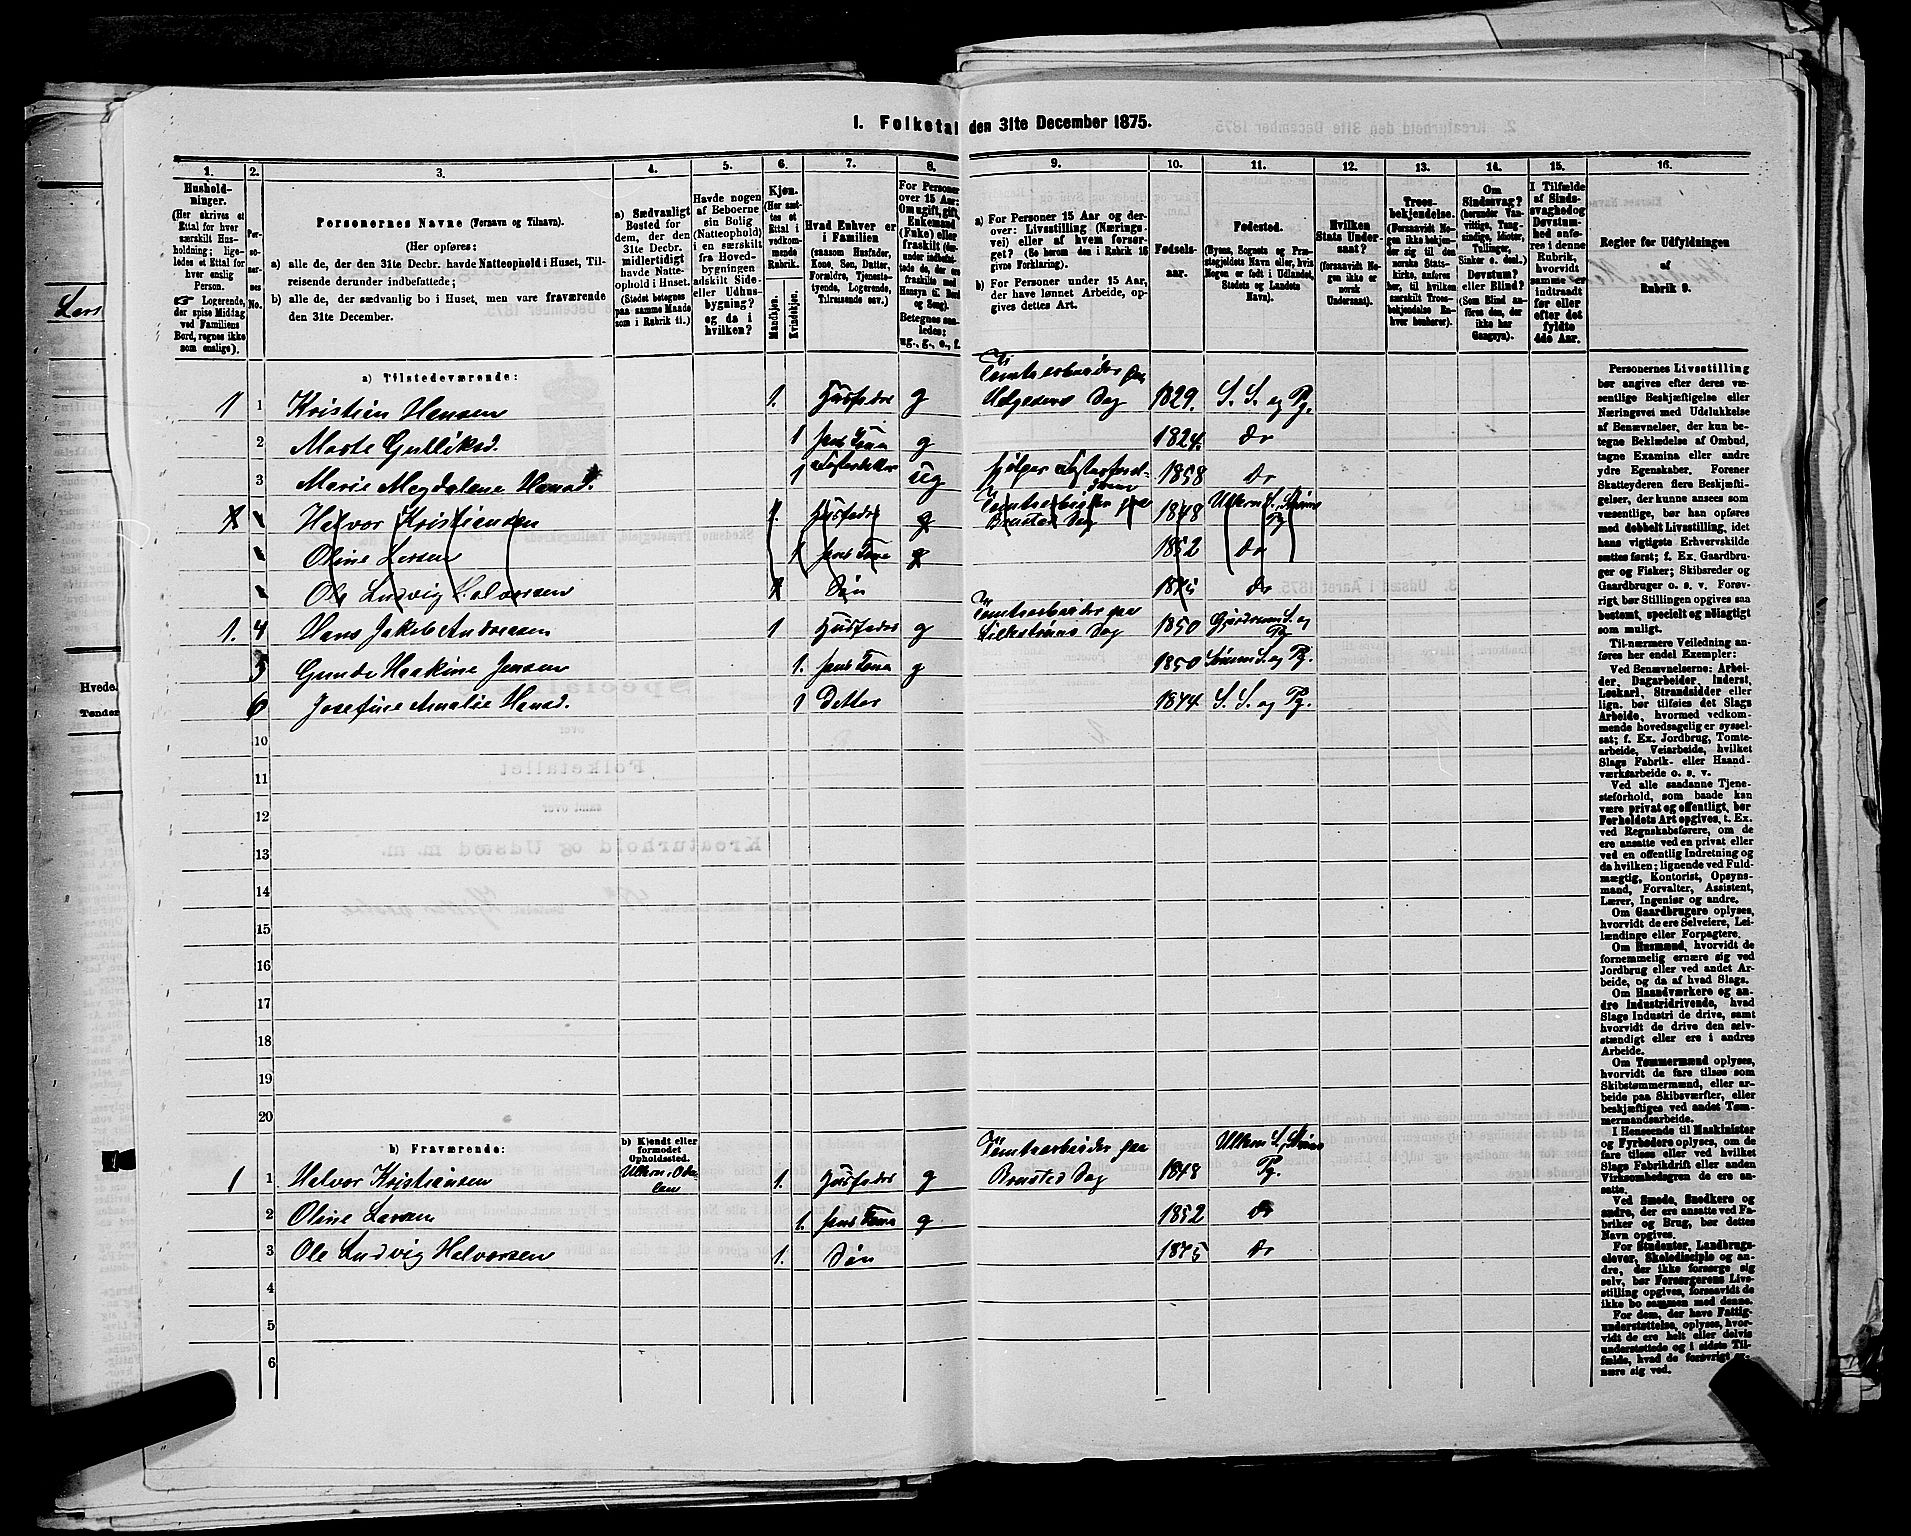 1. Folketal den 31te December 1875.
1. 2. 3. 4. 5. 6. 7. 8. 9. 10. 11. 12. 13. 14. 15. 16.
Hushold-
ninger.
(Her skrives et
Ettal for hver
særskilt Hus-
holdning; lige-
ledes et Ettal for
hver enslig
Person.
Logerende,
der spise Middag
ved Familiens
Bord, regnes ikke
som enslige).
Per-
soner-
nes
No.
Personernes Navne (Fornavn og Tilnavn).
(Her opføres:
a) alle de, der den 31te Decbr. havde Natteophold i Huset, Til-
reisende derunder indbefattede;
b) alle de, der sædvanlig bo i Huset, men vare fraværende
den 31te December.
a) Sædvanligt
Bosted for
dem, der den
31te Decbr.
midlertidigt
havde Natte-
ophold i Huset.
(Stedet betegnes
paa samme Maade
som i Rubrik 11.)
Havde nogen
af Beboerne
sin Bolig
(Natteophold)
i en særskilt
fra Hoved-
bygningen
adskilt Side-
eller Udhus-
bygning?
og da i
hvilken?
Kjøn.
(Her sæt-
tes et
Ettal i
vedkom-
mende
Rubrik.
Mandkjøn.
Kvindekjøn.
Hvad Enhver er
i Familien
(saasom Husfader,
Kone, Søn, Datter,
Forældre, Tjeneste-
tyende, Logerende,
Tilreisende osv.)
For Personer
over 15 Aar:
Om ugift, gift,
Enkemand
(Enke) eller
fraskilt
Betegnes saa-
ledes:
ug., g., e., f.
a) For Personer 15 Aar og der-
over: Livsstilling (Nærings-
vei) eller af hvem forsør-
get? (Se herom den i Rubrik 16
givne Forklaring).
b) For Personer under 15 Aar,
der have lønnet Arbeide, op-
gives dettes Art.
Fødsels-
aar.
Fødested.
(Byens, Sognets og Præ-
stegjeldets Navn eller, hvis
Nogen er født i Udlandet,
Stedets og Landets
Navn).
Hvilken
Stats Under-
saat?
(forsaavidt No-
gen ikke er
norsk
Undersaat).
Troes-
bekjendelse.
(Forsaavidt No-
gen ikke beken-
der sig til den
norske Stats-
kirke, anføres
her, til hvilket
særskilt Troes-
bekjendelse En-
hver henhører).
Om
Sindssvag?
(herunder Van-
vittige, Tung-
sindige, Idioter,
Tullinger,
Sinker o. desl.)
Døvstum?
eller Blind?
(Som Blind an-
føres den, der
ikke har
Gangsyn).
I Tilfælde
af Sinds-
svaghed og
Døvstum-
hed anfø-
res i denne
Rubrik,
hvorvidt
samme er
indtraadt
før eller
efter det
fyldte
4de Aar.
Regler for Udfyldningen
af
Rubrik 9.
a) Tilstedeværende:
1 1 Kristian Hansen 1. Husfader g Tomtearbeider paa Helgesens Sag 1829. S. S. og Pg.
2 Marte Gulliksd. 1 hans Kone g 1824. do
3 Marie Magdalene Hansd. 1 ug 1858 do
Halvor Kristiansen 1. Husfader g Tomtearbeider paa Brusted Sag 1848 Pg
Oline Larsen 1 hans Kone g 1852 do
Ole Ludvig Halvorsen 1 Søn 1875 do
1. 4 Hans Jakob Andreasen 1 Husfader g Tomtearbeider paa Sag 1850 S. og Pg
5 Gunde Haakine Jensen 1. hans Kone g 1850 S. og Pg.
6 Josefine Amalie Hansd. 1 Datter 1874. S. S. og Pg.
10
11
12
13
14
15
16
17
18
19
20
b) Fraværende:
b) Kjendt eller
formodet
Opholdssted.
1 1 Halvor Kristiansen 1. Husfader g Tomtearbeider paa Brusted Sag 1848 Pg.
2 Oline Larsen 1. hans Kone g 1852 do
3 Ole Ludvig Halvorsen 1. Søn 1875 do
4
5
6
Personernes Livsstilling
bør angives efter deres væ-
sentlige Beskjæftigelse eller
Næringsvei med Udelukkelse
af Benævnelser, der kun be-
tegne Beklædelse af Ombud,
tagne Examina eller andre
ydre Egenskaber. Forener
Skatteyderen flere Beskjæfti-
gelser, der kunne ansees som
væsentlige, bør han opføres
med dobbelt Livsstilling, idet
hans vigtigste Erhvervskilde
sættes først; f. Ex. Gaardbru-
ger og Fisker; Skibsreder og
Gaardbruger o. s. v. Forøv-
rigt bør Stillingen opgives saa
bestemt, specielt og nøiagtigt
som muligt.
Til nærmere Veiledning an-
føres her endel Exempler:
Ved Benævnelserne: Arbei-
der, Dagarbeider, Inderst,
Løskarl, Strandsidder eller
lign. bør tilføies det Slags
Arbeide, hvormed vedkom-
mende hovedsagelig er syssel-
sat; f. Ex. Jordbrug, Tomte-
arbeide, Veiarbeide, hvilket
Slags Fabrik- eller Haand-
værksarbeide o. s. v.
Ved alle saadanne Tjene-
steforhold, som baade kan
være privat og offentligt, bør
Forholdets Art opgives, t. Ex.
ved Regnskabsførere, om de
ere ansatte ved en privat eller
ved en offentlig Indretning og
da hvilken; lignende ved Fuld-
mægtig, Kontorist, Opsyns-
mand, Forvalter, Assistent,
Lærer, Ingeniør og andre.
Om Gaardbrugere oplyses,
hvorvidt de ere Selveiere, Lei-
lændinge eller Forpagtere.
Om Husmænd, hvorvidt de
fornemmelig ernære sig ved
Jordbrug eller ved andet Ar-
beide, og da af hvad Slags.
Om Haandværkere og an-
dre Industridrivende, hvad
Slags Industri de drive, samt
hvorvidt de drive den selv-
stændigt eller ere i andres
Arbeide.
Om Tømmermænd oplyses,
hvorvidt de fare tilsøs som
Skibstømmermænd, eller ar-
beide paa Skibsværfter, eller
beskjæftiges ved andet Tøm-
mermandsarbeide.
I Henseende til Maskinister
og Fyrbødere oplyses, om de
fare tilsøs eller ved hvilket
Slags Fabrikdrift eller anden
Virksomhedsgren de ere an-
satte.
Ved Smede, Snedkere og
andre, der ere ansatte ved Fa-
briker og Brug, bør dettes
Navn opgives.
For Studenter, Landbrugs-
elever, Skoledisciple og an-
dre, der ikke forsørge sig
selv, bør Forsørgerens Livs-
stilling opgives, forsaavidt de
ikke bo sammen med denne.
For dem, der have Fattig-
understøttelse, oplyses, hvor-
vidt de ere helt eller delvis
understøttede og i sidste Til-
fælde, hvad de forøvrigt er-
nære sig ved.
Hvede.
Tønder